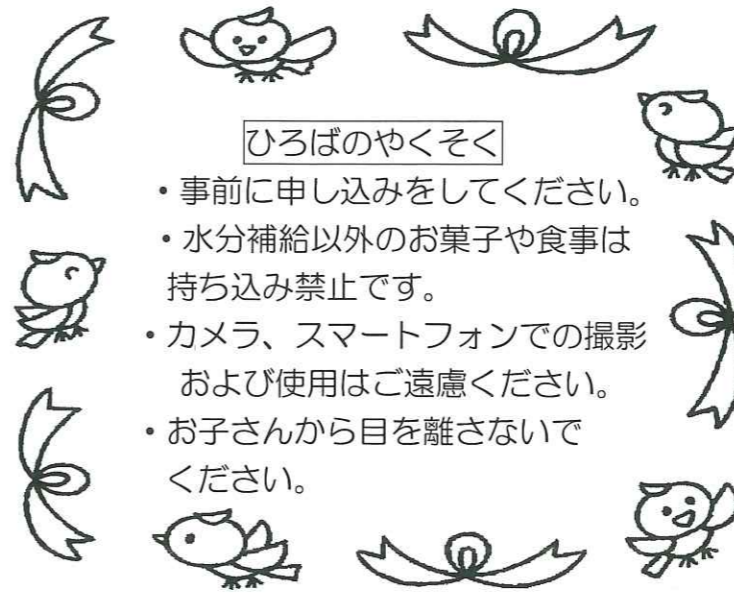 ひろばのやくそく
・事前に申し込みをしてください。
・水分補給以外のお菓子や食事は
持ち込み禁止です。
・カメラ、スマートフォンでの撮影
および使用はご遠慮ください。
・お子さんから目を離さないで
ください。